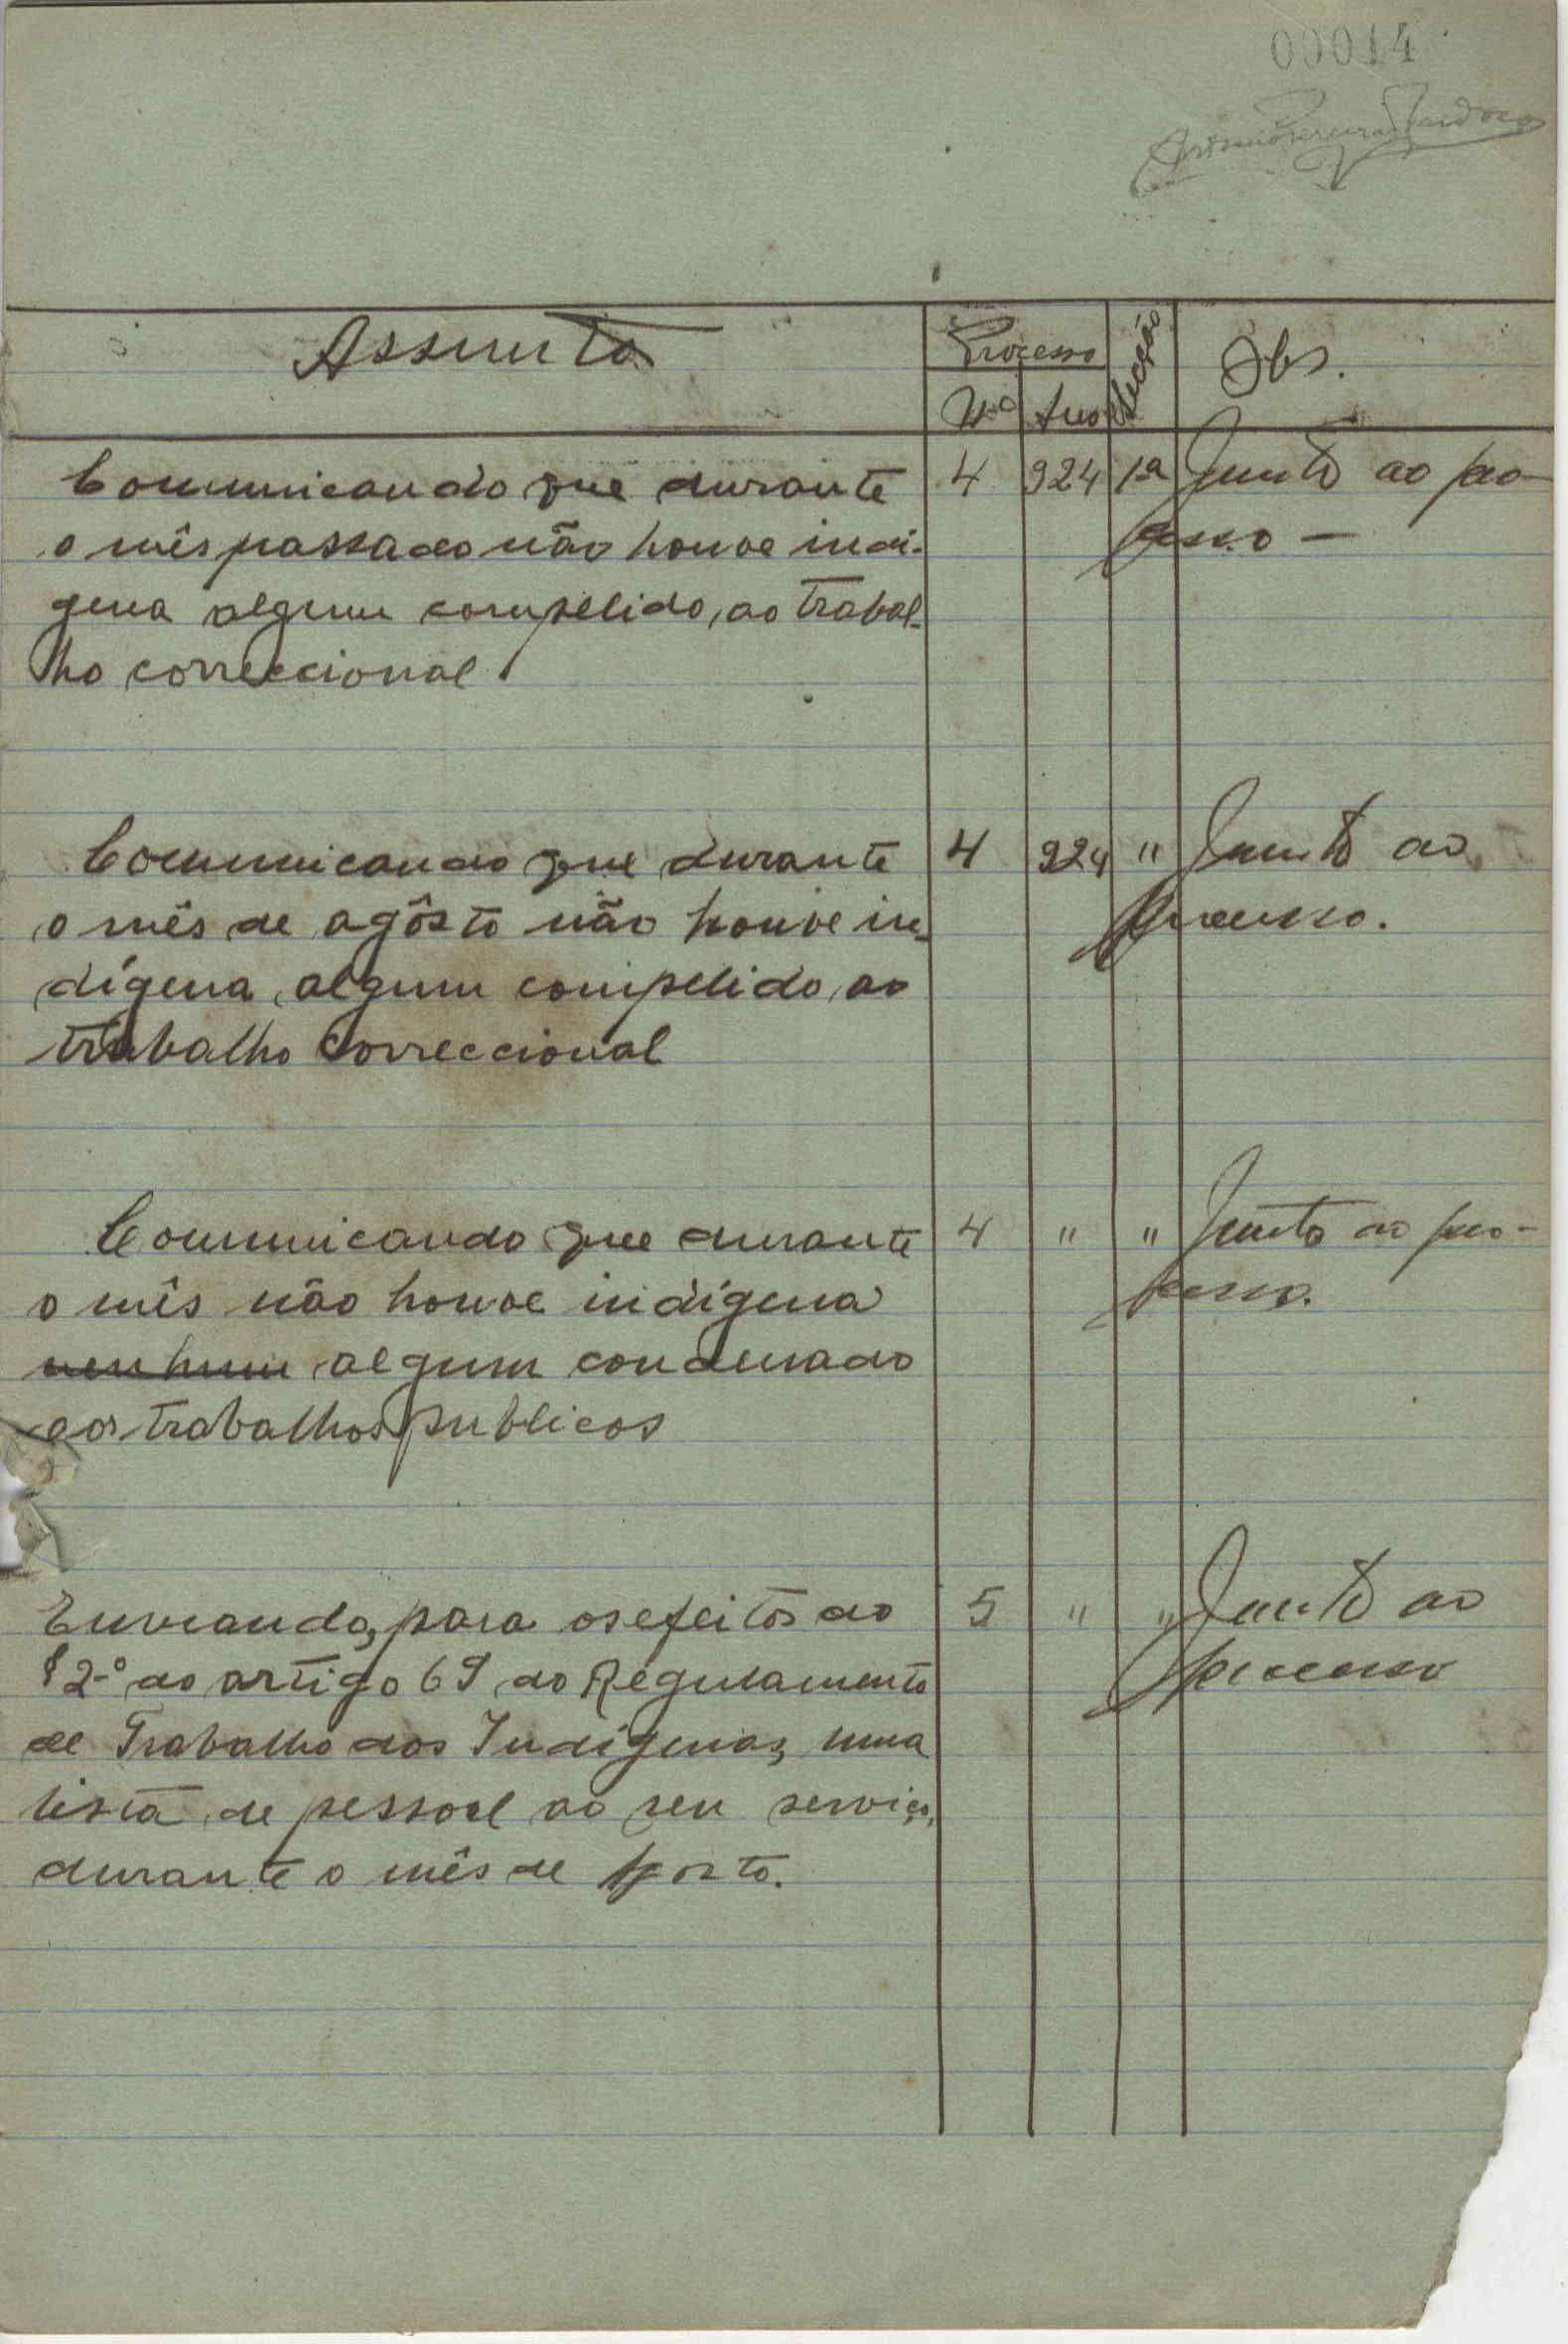 00014
Assunto
Processo
Secção
Obs.
Nº Ano
Communicando que durante 4 924 1ª Junto ao pro-
o mês passado não houve indi- cesso —
gena algum compelido, ao trabal-
ho correccional.
Communicando que durante 4 924 " Junto ao
o mês de agôsto não houve in- processo.
dígena algum compelido, ao
trabalho correccional
Communicando que durante 4 " " Junto ao pro-
o mês não houve indígena cesso.
nenhum algum condenado
aos trabalhos publicos
Enviando, para os efeitos do 5 " " Junto ao
§ 2º do artigo 69 do Regulamento processo
de Trabalho dos Indígenas, uma
lista de pessoal ao seu serviço,
durante o mês de